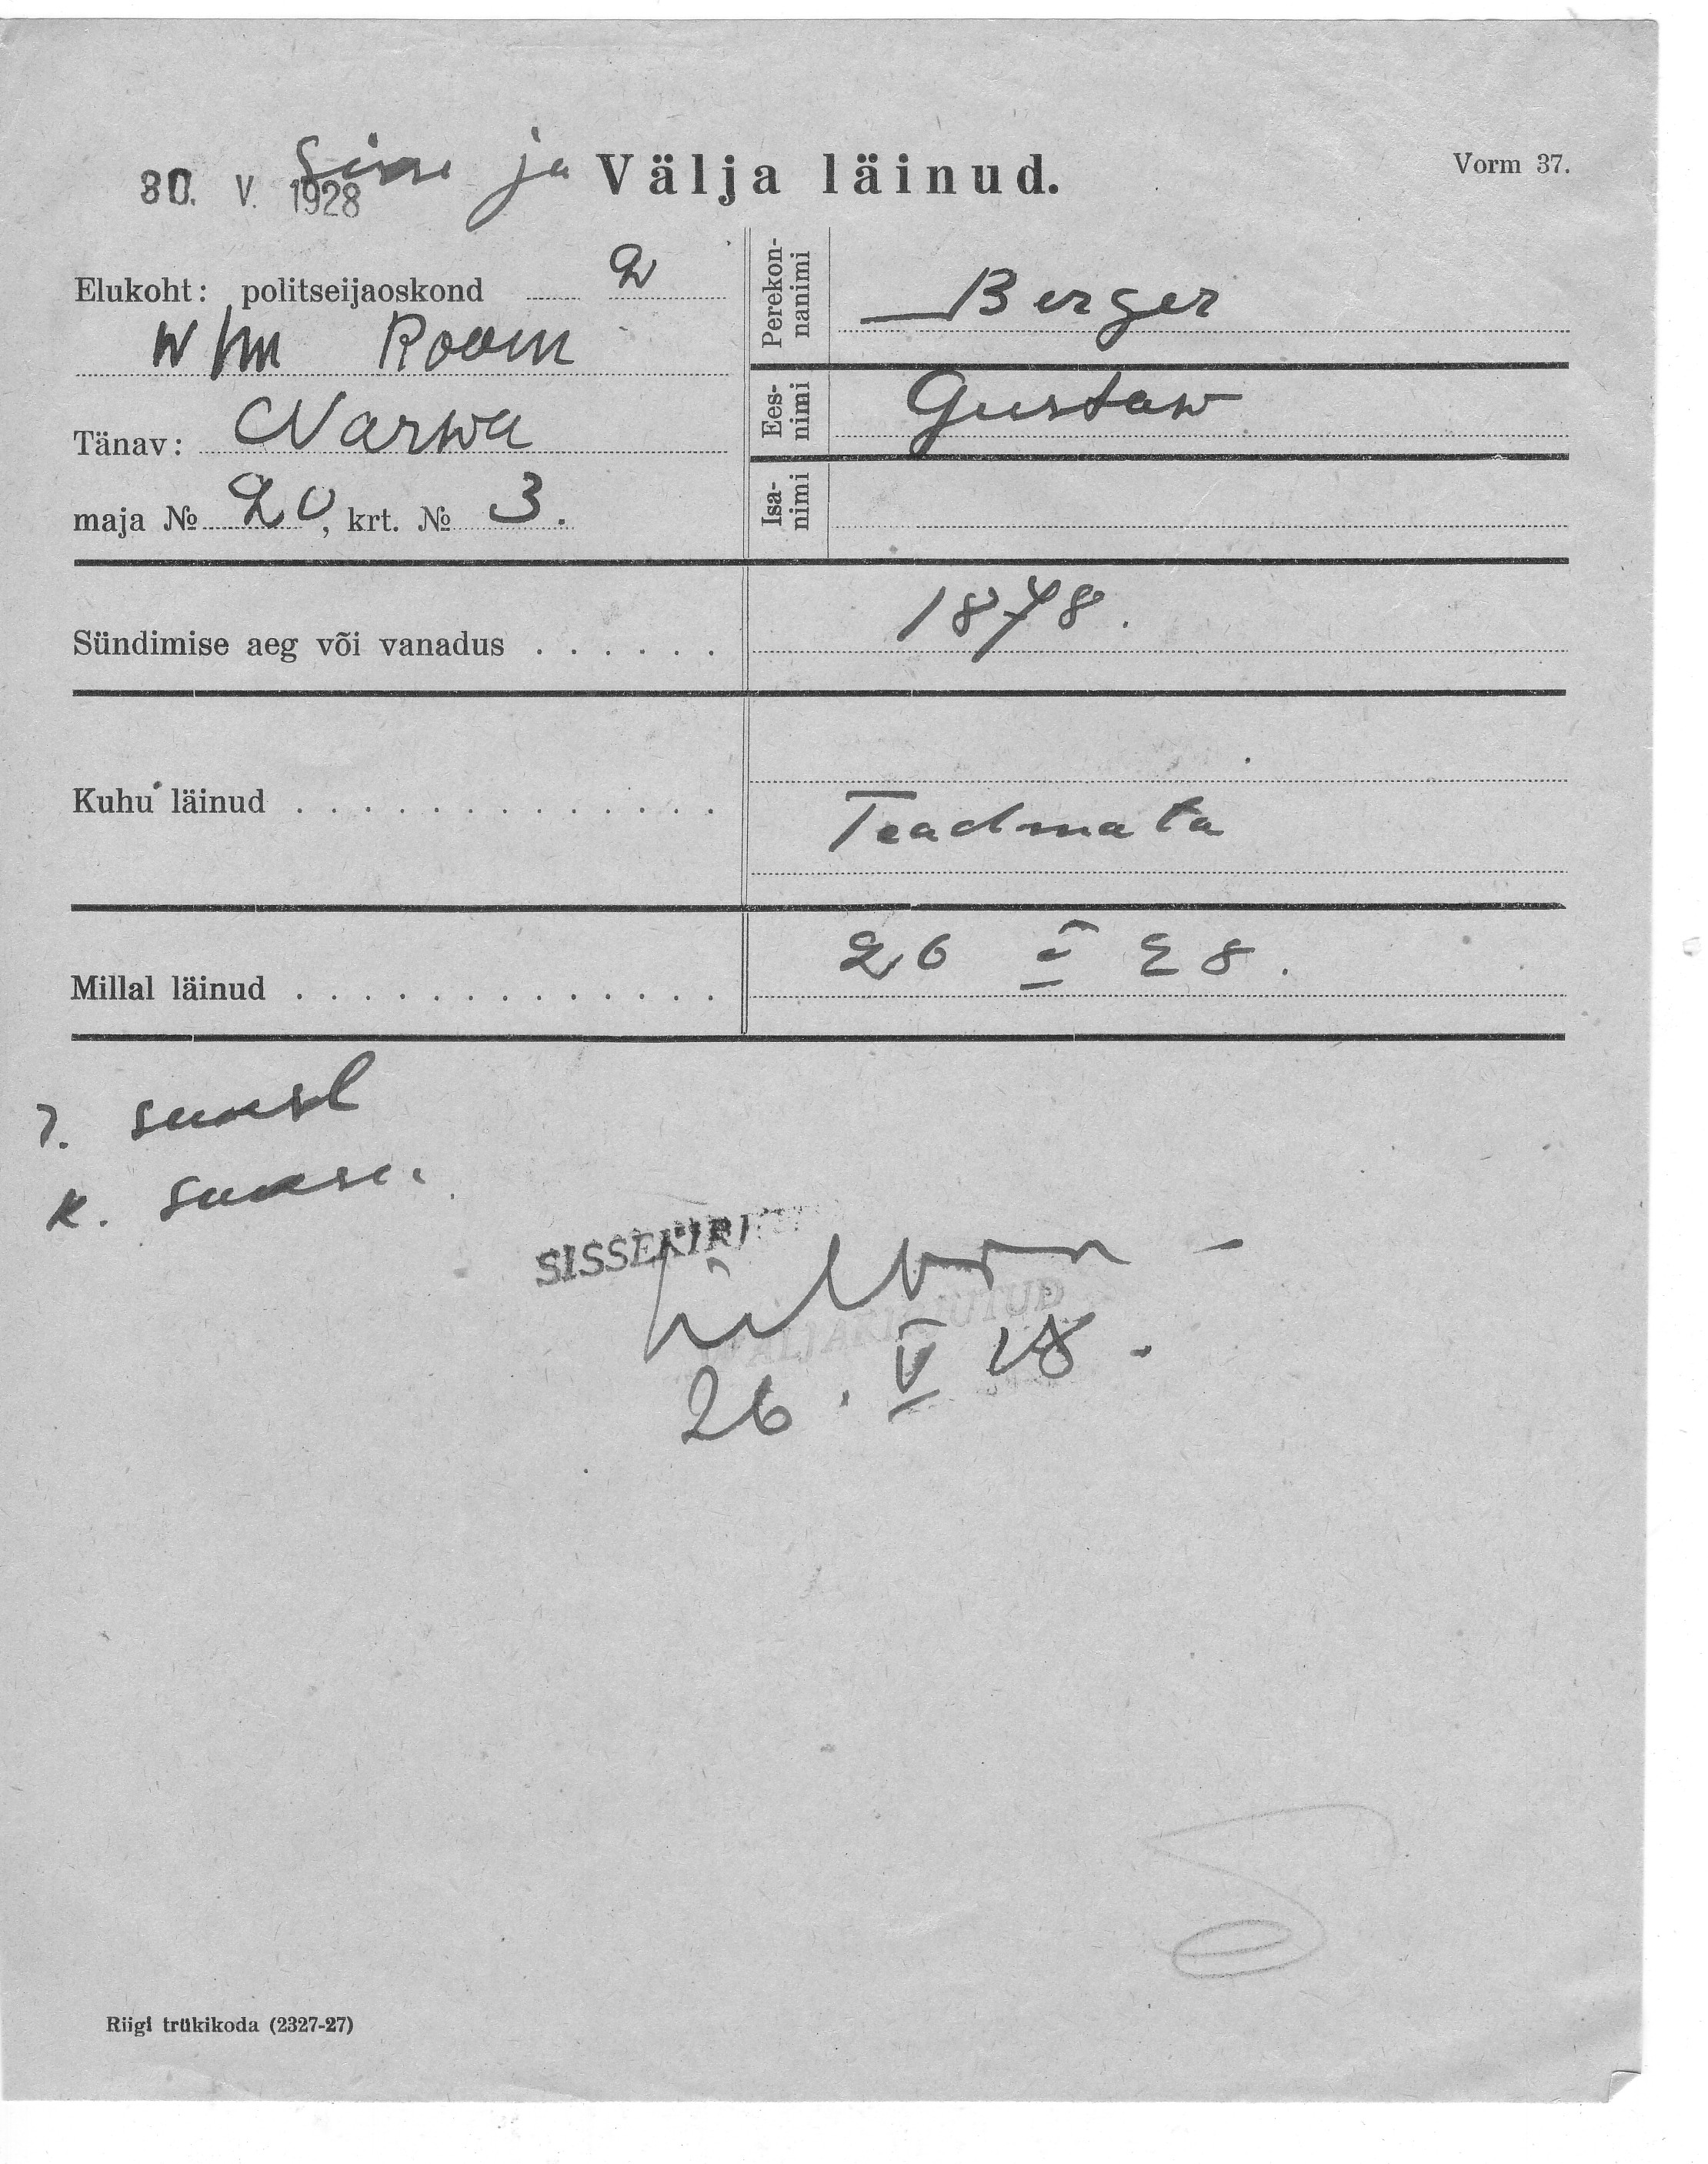 Sisse ja Välja läinud.
Vorm 37.
30. V. 1928
Elukoht: politseijaoskond 2
Room
Tänav: Narwa
maja № 20, krt. № 3.
Perekon-
nanimi
Berger
Ees-
nimi
Gustaw
Isa-
nimi
Sündimise aeg või vanadus . . . . . .
1878.
Kuhu läinud . . . . . . . . . . . . .
Teadmata
Millal läinud . . . . . . . . . . . . .
26 V 28.
K.
SISSEKIRJ
VÄLJAKIRJUTUD
26. V 28.
Riigi trükikoda (2327-27)